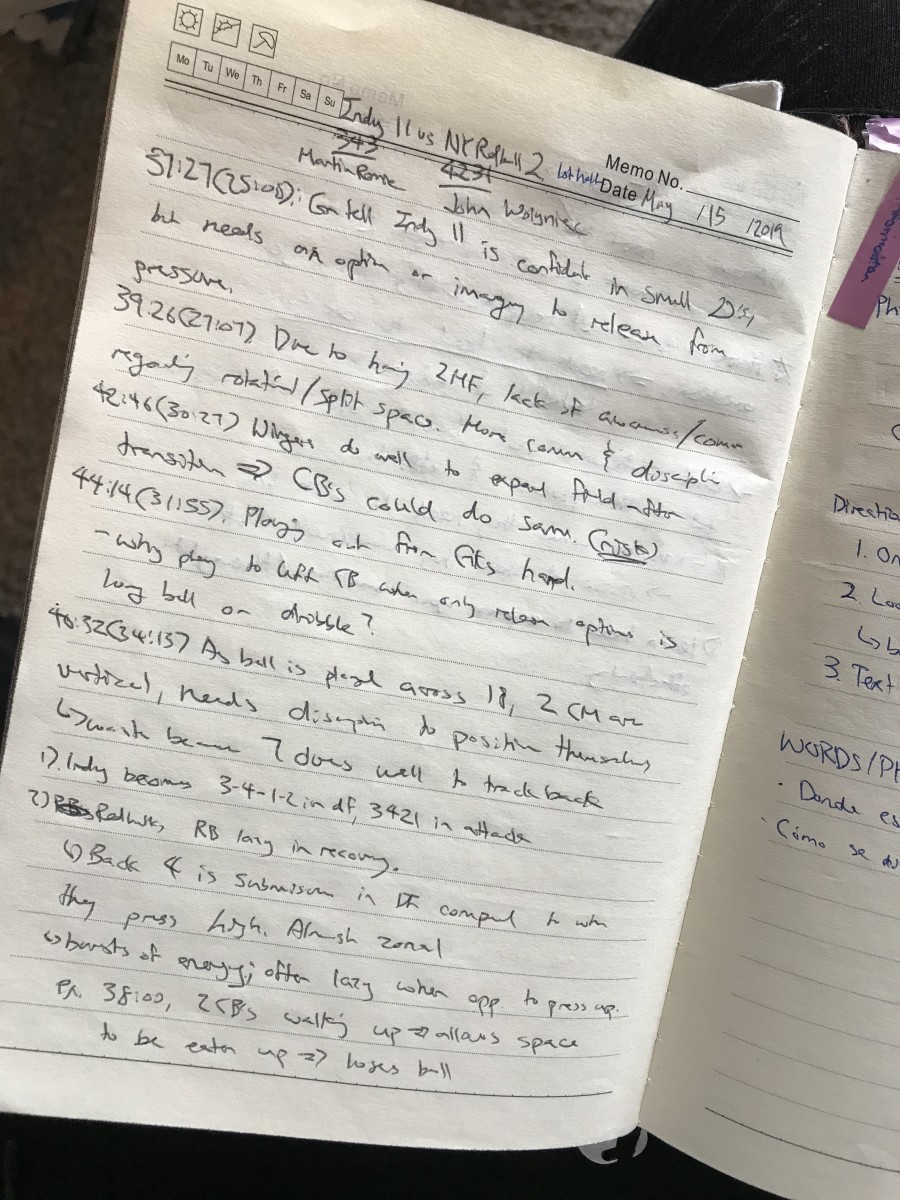 Mo Tu We Th Fr Sa Su
Memo No.
Indy 11 vs NYRedbull 2 1st half Date May /15 /2019
343 4231
Martin Rennie John Wolyniec
37:27 (25:08): Can tell Indy 11 is confident in small
but needs an option or imagery to release from
pressure.
39:26 (27:07) Due to having 2 MF, lack of awareness/comm
regarding rotation/split space. More comm & discipline
42:46 (30:27) Wingers do well to expand field after
transition ⇒ CB's could do same. (risk)
44:14 (31:55). Playing out from GKs hand.
- why play to left CB when only release options is
long ball or dribble?
46:32 (34:13) As ball is played across 18, 2 CM are
vertical, needs discipline to position themselves
↳ works because 7 does well to track back
1). Indy becomes 3-4-1-2 in df, 3421 in attack
2) Redbulls, RB lazy in recovery.
↳ Back 4 is submissive in DF compared to when
they press high. Almost zonal
↳ bursts of energy; often lazy when opp. to press up.
Ex. 38:00, 2 CB's walking up ⇒ allows space
to be eaten up ⇒ loses ball
Ph
Directio
1. On
2. Loo
↳ b
3. Text
WORDS/PH
· Donde es
· Cómo se